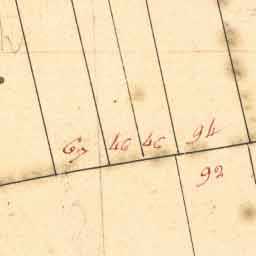 67 46 46 94
92